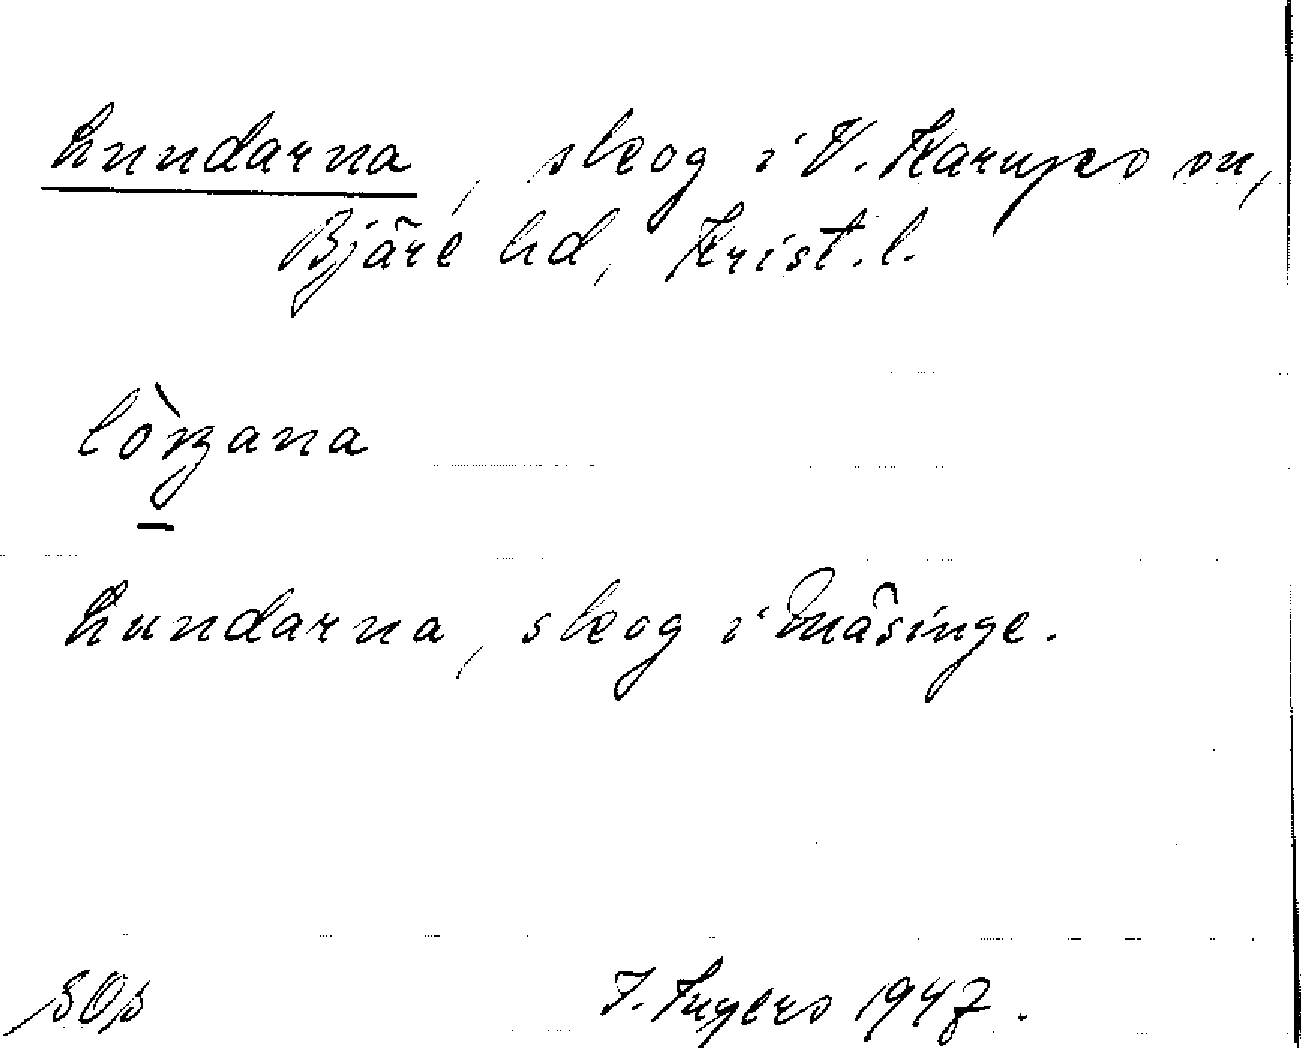 Lundarna, skog i V. Karups sn,
Bjäre hd, Krist. l.
Lundarna, skog i Måsinge.
I. Ingers 1947.